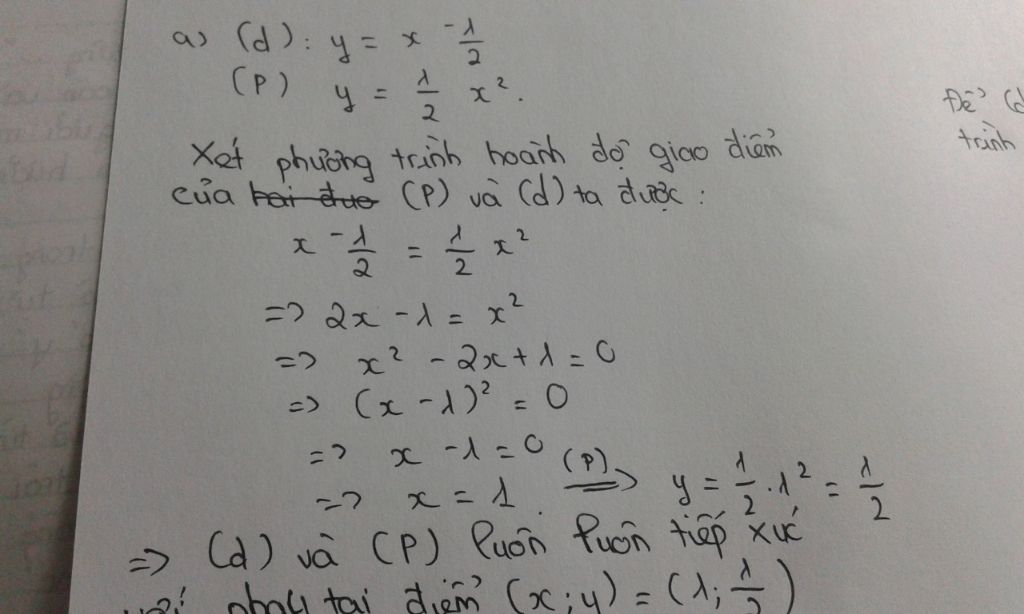 a) (d): y = x - 1/2
(P) y = 1/2 x².
Xét phương trình hoành độ giao điểm
của hai đươ (P) và (d) ta được:
x - 1/2 = 1/2 x²
=> 2x - 1 = x²
=> x² - 2x + 1 = 0
=> (x - 1)² = 0
=> x - 1 = 0
=> x = 1. (P) => y = 1/2 . 1² = 1/2
=> (d) và (P) luôn luôn tiếp xúc
với nhau tại điểm (x; y) = (1; 1/2)
Để (d
trình